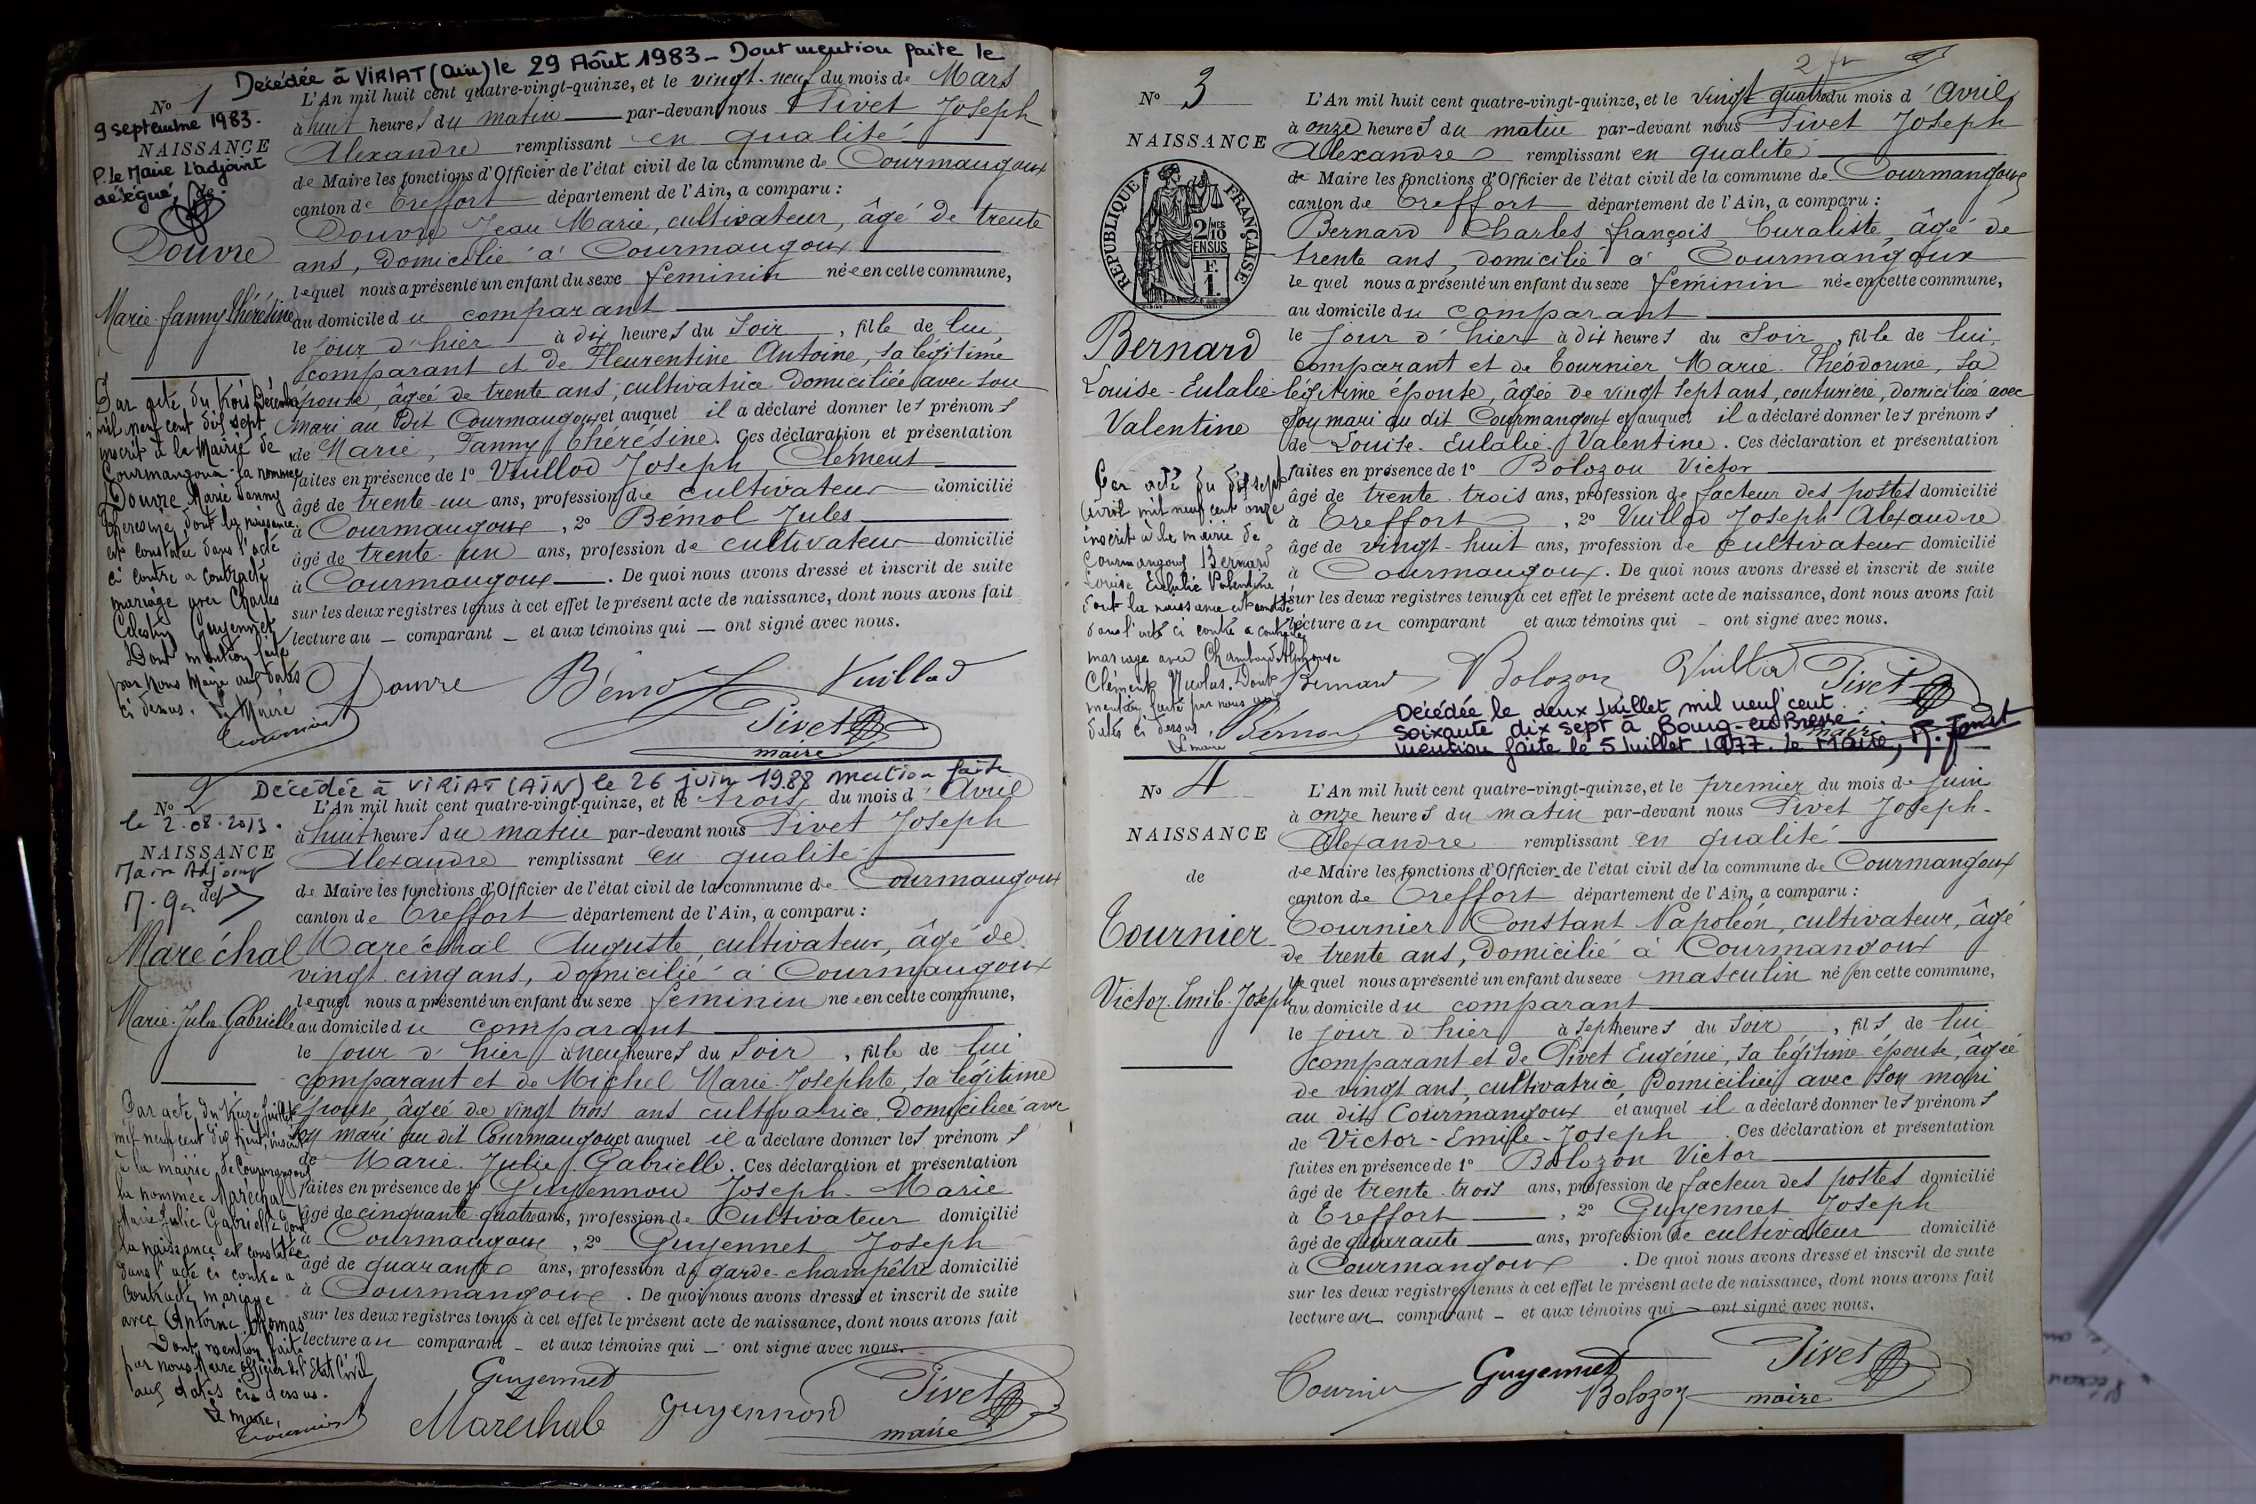 Decédée à VIRIAT (Ain) le 29 Août 1983 - Dont mention faite le
9 septembre 1983.
P. le Maire L'adjoint
délégué,
No 1
NAISSANCE
Douvre
Marie fanny Thérésine
L'An mil huit cent quatre-vingt-quinze, et le vingt-neuf du mois de Mars
à huit heures du matin par-devant nous Pivet Joseph
Alexandre remplissant en qualité
de Maire les fonctions d'Officier de l'état civil de la commune de Courmangoux
canton de Treffort département de l'Ain, a comparu :
Douvre Jean Marie, cultivateur, âgé de trente
ans, domicilié à Courmangoux
lequel nous a présenté un enfant du sexe féminin née en cette commune,
au domicile du comparant
le jour d'hier à dix heures du soir, fille de lui
comparant et de Fleurentine Antoine, sa légitime
épouse, âgée de trente ans, cultivatrice domiciliée avec son
mari au dit Courmangoux et auquel il a déclaré donner les prénoms
de Marie, Fanny Thérésine. Ces déclaration et présentation
faites en présence de 1o Vuillod Joseph, Clément
âgé de trente-un ans, profession de cultivateur domicilié
à Courmangoux, 2o Bémol Jules
âgé de trente-un ans, profession de cultivateur domicilié
à Courmangoux. De quoi nous avons dressé et inscrit de suite
sur les deux registres tenus à cet effet le présent acte de naissance, dont nous avons fait
lecture au - comparant - et aux témoins qui - ont signé avec nous.
Par acte du trois Décembre
mil neuf cent dix sept
inscrit à la Mairie de
Courmangoux la nommée
Douvre Marie Fanny
Théresine dont la naissance
est constatée dans l'acte
ci contre a contracté
mariage avec Charles
Célestin Guyennet
Dont mention faite
par nous Maire aux dates
ci dessus. Le Maire
Tournier
Douvre Bémol Vuillod
Pivet
maire
Décédée à VIRIAT (AIN) le 26 juin 1988 mention faite
le 2.08.2013.
No 2
NAISSANCE
Maréchal
Marie-Julie Gabrielle
L'An mil huit cent quatre-vingt-quinze, et le trois du mois d'Avril
à huit heures du matin par-devant nous Pivet Joseph
Alexandre remplissant en qualité
de Maire les fonctions d'Officier de l'état civil de la commune de Courmangoux
canton de Treffort département de l'Ain, a comparu :
Maréchal Auguste, cultivateur, âgé de
vingt cinq ans, domicilié à Courmangoux
lequel nous a présenté un enfant du sexe féminin née en cette commune,
au domicile du comparant
le jour d'hier à neuf heures du soir, fille de lui
comparant et de Michel Marie-Josephte, sa légitime
épouse, âgée de vingt trois ans cultivatrice, domiciliée avec
son mari au dit Courmangoux et auquel il a déclaré donner les prénoms
de Marie-Julie Gabrielle. Ces déclaration et présentation
faites en présence de 1o Guyennon Joseph-Marie
âgé de cinquante quatre ans, profession de cultivateur domicilié
à Courmangoux, 2o Guyennet Joseph
âgé de quarante ans, profession de garde-champêtre domicilié
à Courmangoux. De quoi nous avons dressé et inscrit de suite
sur les deux registres tenus à cet effet le présent acte de naissance, dont nous avons fait
lecture au comparant - et aux témoins qui - ont signé avec nous.
Par acte du treize Juillet
mil neuf cent dix huit, inscrit
à la mairie de Courmangoux
la nommée Maréchal
Marie Julie Gabrielle dont
la naissance est constatée
dans l'acte ci contre a
contracté mariage
avec Antoine Thomas
Dont mention faite
par nous Maire officier de l'Etat Civil
aux dates ci dessus.
Le maire,
Tournier
Guyennet
Maréchal Guyennon Pivet
maire
2 fr
No 3
NAISSANCE
RÉPUBLIQUE FRANÇAISE
2/10 MES
EN SUS
F.
1.
Bernard
Louise-Eulalie
Valentine
L'An mil huit cent quatre-vingt-quinze, et le vingt quatre du mois d'Avril
à onze heures du matin par-devant nous Pivet Joseph
Alexandre remplissant en qualité
de Maire les fonctions d'Officier de l'état civil de la commune de Courmangoux
canton de Treffort département de l'Ain, a comparu :
Bernard Charles françois, buraliste, âgé de
trente ans, domicilié à Courmangoux
lequel nous a présenté un enfant du sexe féminin née en cette commune,
au domicile du comparant
le jour d'hier à dix heures du soir, fille de lui,
comparant et de Tournier Marie-Théodorine, sa
légitime épouse, âgée de vingt sept ans, couturière, domiciliée avec
son mari au dit Courmangoux et auquel il a déclaré donner les prénoms
de Louise-Eulalie-Valentine. Ces déclaration et présentation
faites en présence de 1o Bolozon Victor
âgé de trente-trois ans, profession de facteur des postes domicilié
à Treffort, 2o Vuillod Joseph Alexandre
âgé de vingt-huit ans, profession de cultivateur domicilié
à Courmangoux. De quoi nous avons dressé et inscrit de suite
sur les deux registres tenus à cet effet le présent acte de naissance, dont nous avons fait
lecture au comparant et aux témoins qui - ont signé avec nous.
Par acte du dix sept
avril mil neuf cent onze
inscrit à la mairie de
Courmangoux Bernard
Louise Eulalie Valentine
dont la naissance est constatée
dans l'acte ci contre a contracté
mariage avec Chambard Alphonse
Clément Nicolas. Dont
mention faite par nous aux
dates ci dessus.
Le maire
Bémol
Bernard Bolozon Vuillod Pivet
maire
Décédée le deux Juillet mil neuf cent
soixante dix sept à Bourg-en-Bresse.
mention faite le 5 Juillet 1977. Le Maire,
No 4
NAISSANCE
de
Tournier
Victor-Emile-Joseph
L'An mil huit cent quatre-vingt-quinze, et le premier du mois de Juin
à onze heures du matin par-devant nous Pivet Joseph-
Alexandre remplissant en qualité
de Maire les fonctions d'Officier de l'état civil de la commune de Courmangoux
canton de Treffort département de l'Ain, a comparu :
Tournier Constant Napoléon, cultivateur, âgé
de trente ans, domicilié à Courmangoux
lequel nous a présenté un enfant du sexe masculin né en cette commune,
au domicile du comparant
le jour d'hier à sept heures du soir, fils de lui
comparant et de Pivet Eugénie, sa légitime épouse, âgée
de vingt ans, cultivatrice, domiciliée avec son mari
au dit Courmangoux et auquel il a déclaré donner les prénoms
de Victor-Emile-Joseph. Ces déclaration et présentation
faites en présence de 1o Bolozon Victor
âgé de trente-trois ans, profession de facteur des postes domicilié
à Treffort, 2o Guyennet Joseph
âgé de quarante ans, profession de cultivateur domicilié
à Courmangoux. De quoi nous avons dressé et inscrit de suite
sur les deux registres tenus à cet effet le présent acte de naissance, dont nous avons fait
lecture au comparant - et aux témoins qui - ont signé avec nous.
Tournier Guyennet Bolozon Pivet
maire